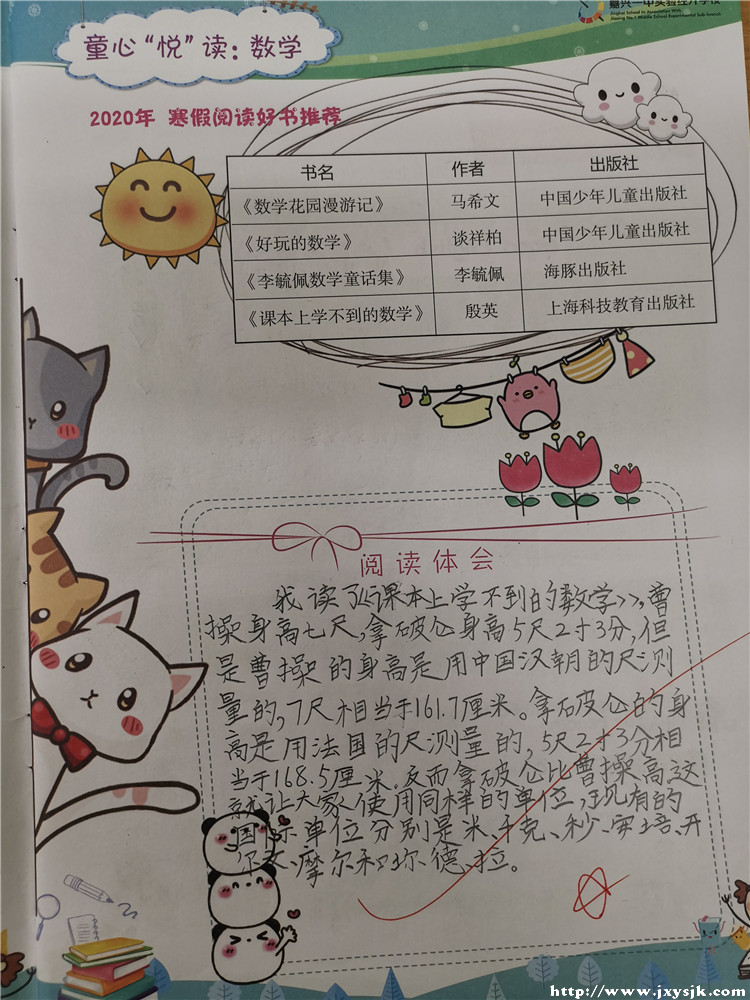 嘉兴一中实验经开学校
童心“悦”读：数学
2020年 寒假阅读好书推荐
书名 作者 出版社
《数学花园漫游记》 马希文 中国少年儿童出版社
《好玩的数学》 谈祥柏 中国少年儿童出版社
《李毓佩数学童话集》 李毓佩 海豚出版社
《课本上学不到的数学》 殷英 上海科技教育出版社
阅读体会
我读了《课本上学不到的数学》，曹
操身高七尺，拿破仑身高5尺2寸3分，但
是曹操的身高是用中国汉朝的尺测
量的，7尺相当于161.7厘米。拿破仑的身
高是用法国的尺测量的，5尺2寸3分相
当于168.5厘米，反而拿破仑比曹操高，这
就让大家使用同样的单位，现有的
国际单位分别是米、千克、秒、安培、开
尔文、摩尔和坎、德、拉。
http://www.jxysjk.com